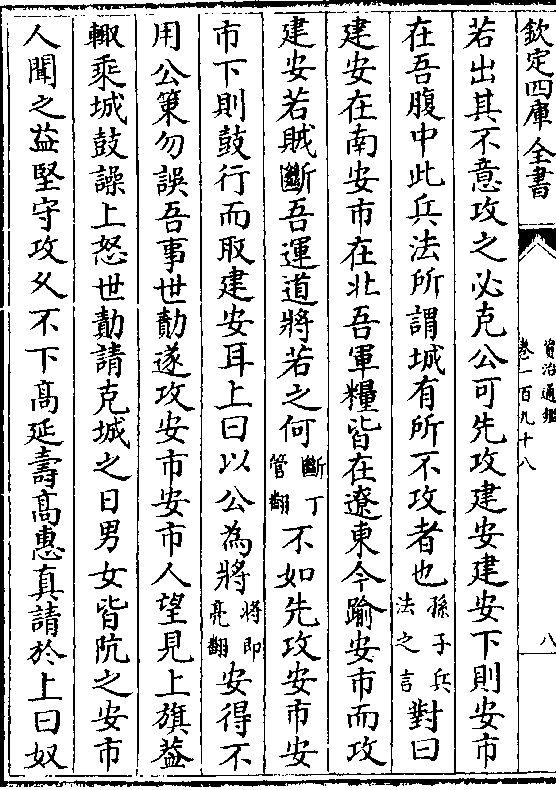 欽定四庫全書
資治通鑑
卷一百九十八
八
若出其不意攻之必克公可先攻建安建安下則安市
在吾腹中此兵法所謂城有所不攻者也孫子兵法之言對曰
建安在南安市在北吾軍糧皆在遼東今踰安市而攻
建安若賊斷吾運道將若之何斷丁管翻不如先攻安市安
市下則鼓行而取建安耳上曰以公為將將即亮翻安得不
用公策勿誤吾事世勣遂攻安市安市人望見上旗葢
輙乘城鼓譟上怒世勣請克城之日男女皆阬之安市
人聞之益堅守攻久不下高延壽高惠真請於上曰奴